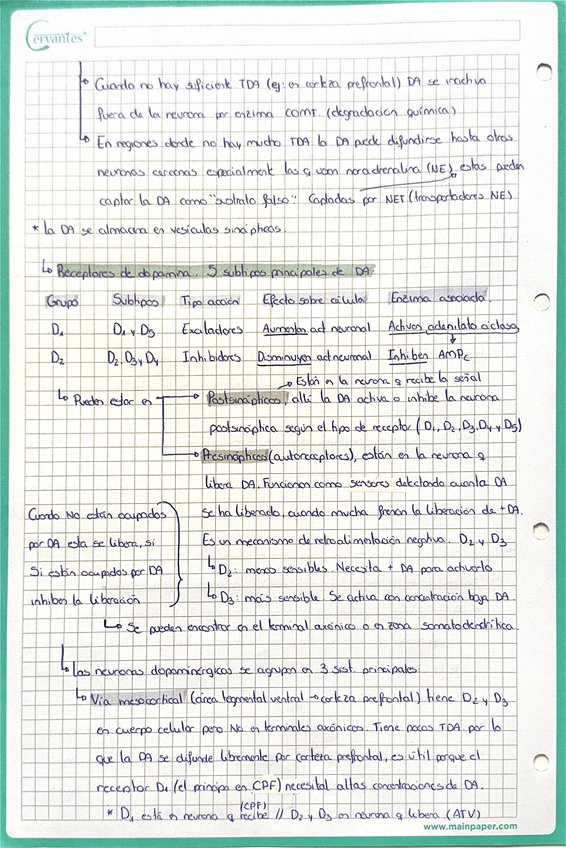 Cervantes®
↳ Cuando no hay suficiente TDA (ej: en corteza prefrontal) DA se inactiva
fuera de la neurona por enzima COMT. (degradación química)
↳ En regiones donde no hay mucho TDA la DA puede difundirse hasta otras
neuronas cercanas especialmente las q usan noradrenalina (NE), estas pueden
captar la DA como "sustrato falso". Captadas por NET (transportadores NE)
* la DA se almacena en vesículas sinápticas.
↳ Receptores de dopamina. 5 subtipos principales de DA:
Grupo Subtipos Tipo acción Efecto sobre célula Enzima asociada.
D₁ D₁ y D₅ Excitadores Aumentan act neuronal Activan adenilato ciclasa
D₂ D₂, D₃ y D₄ Inhibidores Disminuyen act neuronal Inhiben AMPc
↳ Pueden estar en → Postsinápticos, allí la DA activa o inhibe la neurona
→ Están en la neurona q recibe la señal
postsináptica según el tipo de receptor (D₁, D₂, D₃, D₄ y D₅)
→ Presinápticos (autorreceptores), están en la neurona q
libera DA. Funcionan como sensores detectando cuanta DA
se ha liberado, cuando mucha frenan la liberación de + DA.
Es un mecanismo de retroalimentación negativa. D₂ y D₃
↳ D₂: menos sensibles. Necesita + DA para activarlo
↳ D₃: más sensible. Se activa con concentración baja DA.
Cuando NO están ocupados
por DA esta se libera, si
Si están ocupados por DA
inhiben la liberación
↳ Se pueden encontrar en el terminal axónico o en zona somatodendrítica.
↳ Las neuronas dopaminérgicas se agrupan en 3 sist. principales
↳ Vía mesocortical (área tegmental ventral → corteza prefrontal) tiene D₂ y D₃
en cuerpo celular pero NO en terminales axónicos. Tiene pocas TDA por lo
que la DA se difunde libremente por corteza prefrontal, es útil porque el
receptor D₁ (el principa en CPF) necesital altas concentraciones de DA.
* D₁ está en neurona q recibe (CPF) // D₂ y D₃ en neurona q libera (ATV)
www.mainpaper.com